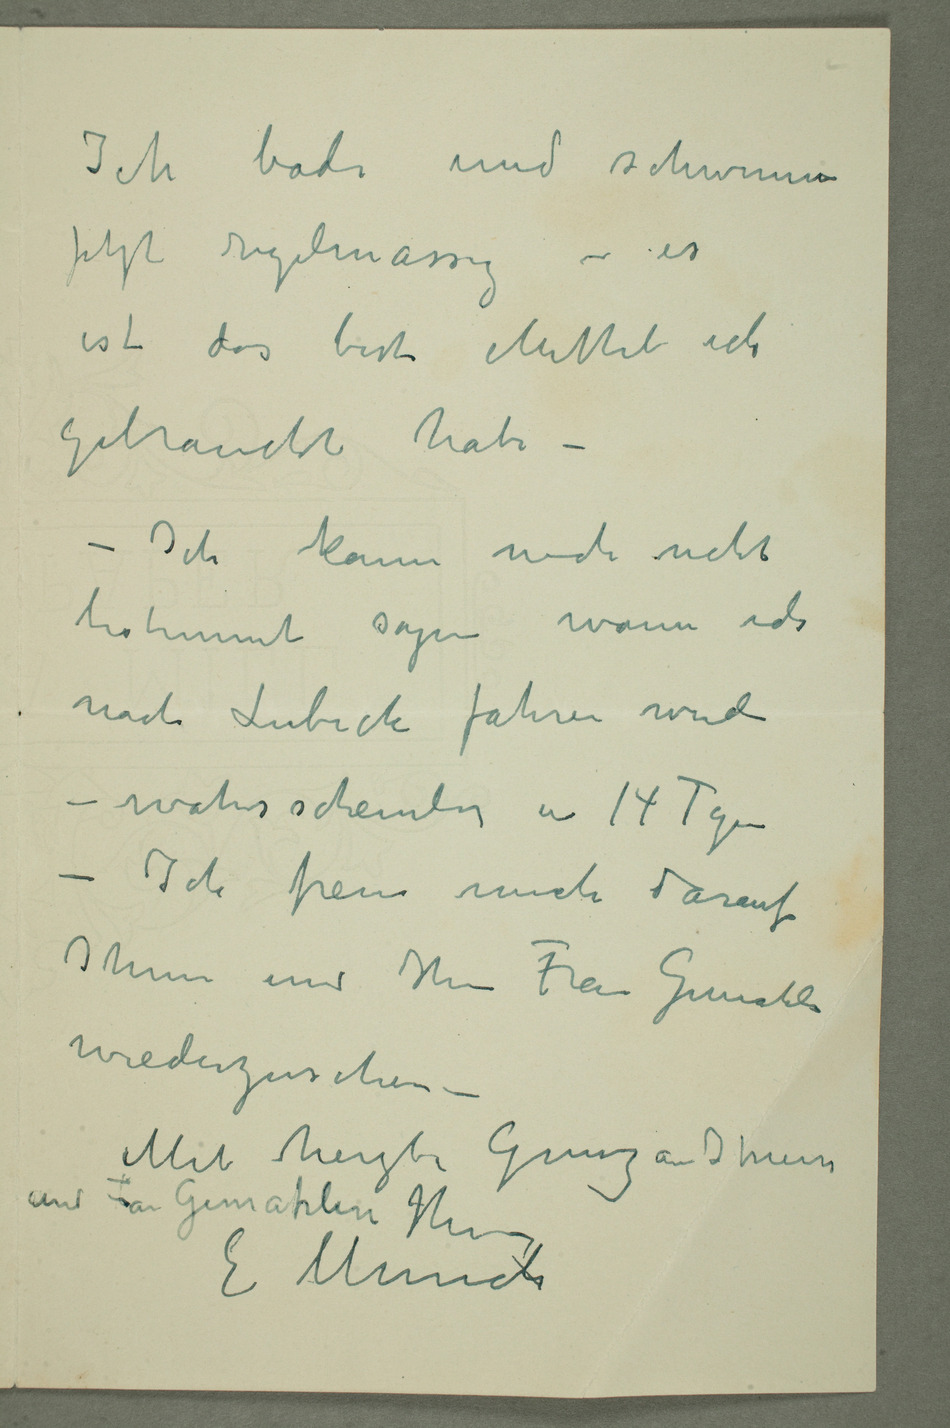 Ich bade und schwimme
jetzt regelmassig – es
ist das beste Mittel ich
gebraucht habe –
– Ich kann noch nicht
bestimmt sagen wann ich
nach Lubeck fahren werde
– wahrscheinlig in 14 Tgen
– Ich freue mich darauf
Ihnen und Ihre Frau Gemahlin
wiederzusehen –
Mit herzl. Grusz an Ihnen
und Frau Gemahlin Ihr
E Munch